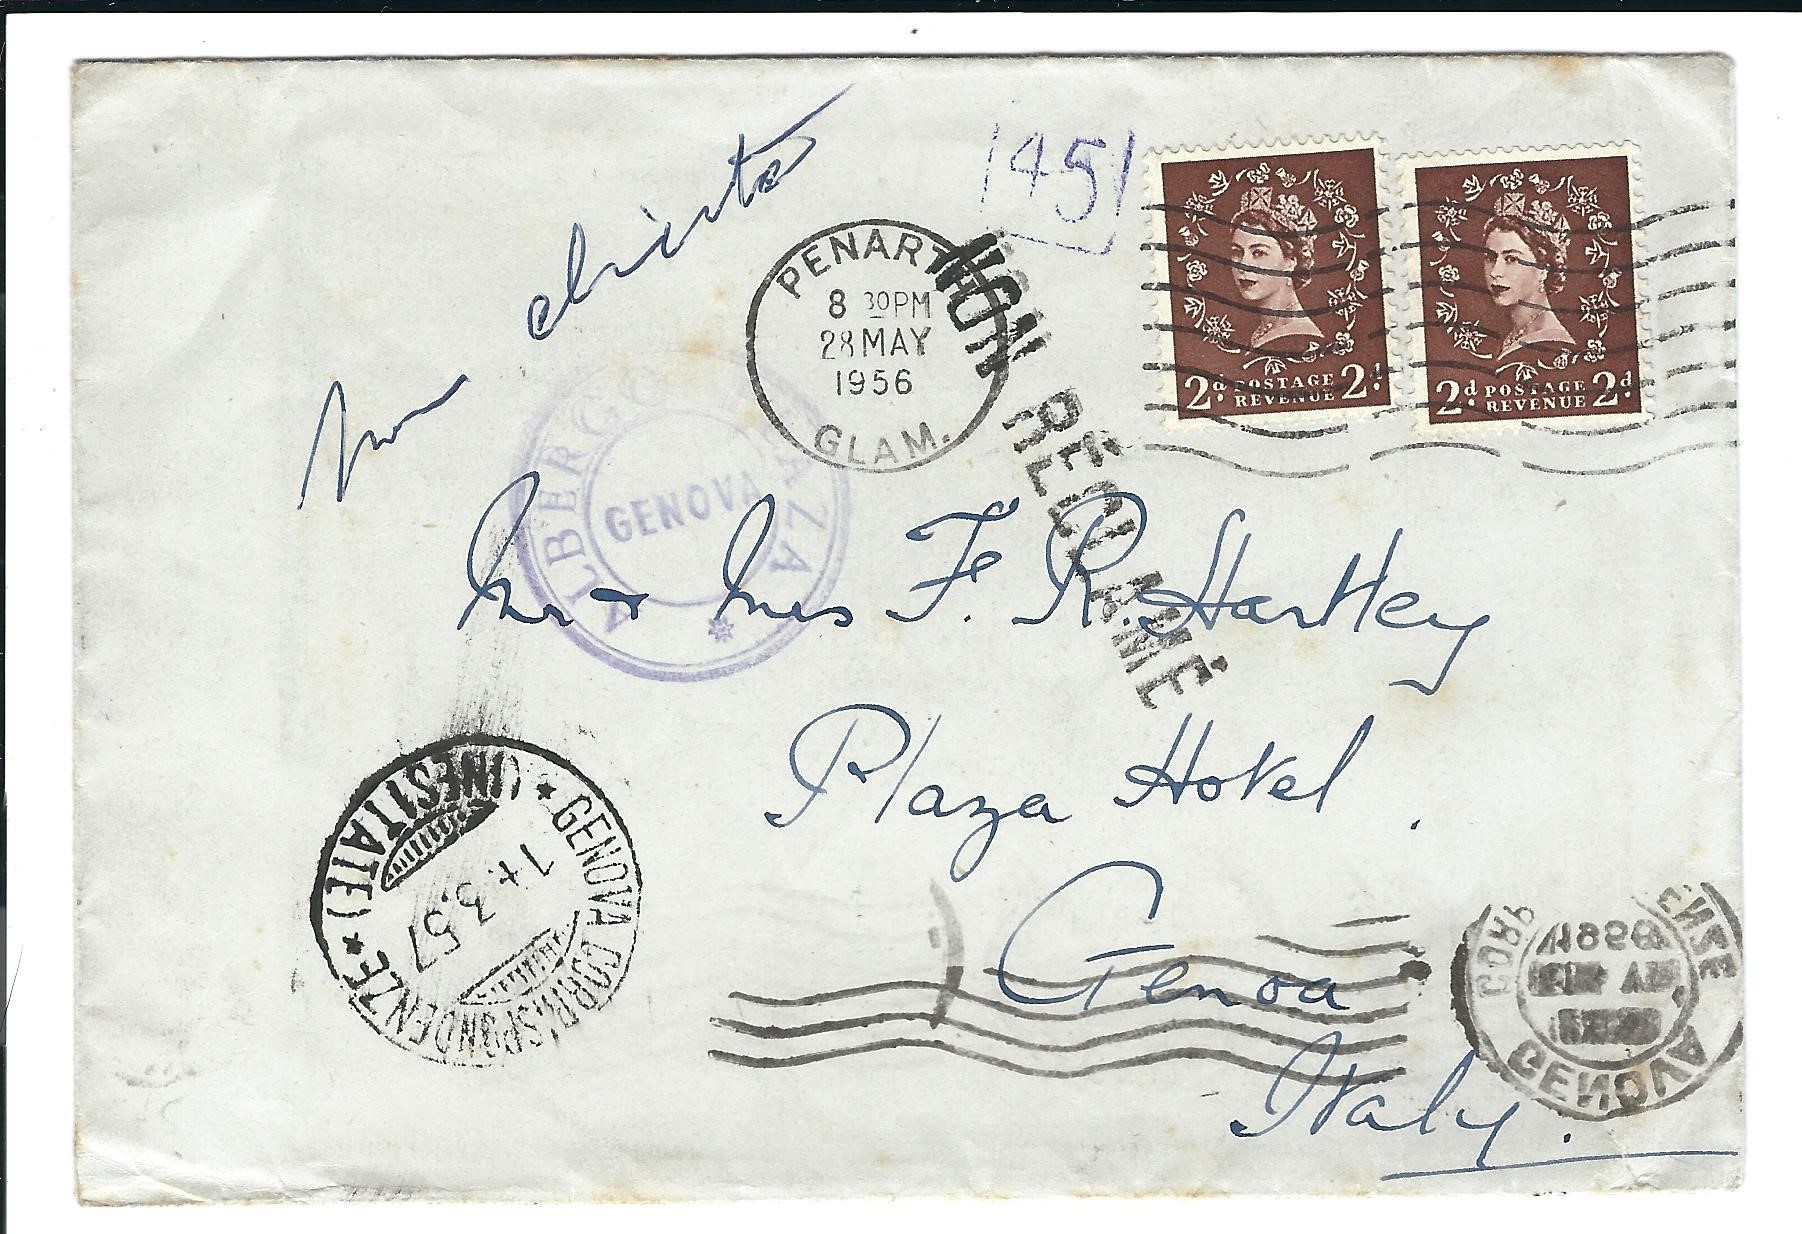 non chiesta
451
PENARTH
8 30PM
28 MAY
1956
GLAM.
NON RÉCLAMÉ
2d POSTAGE REVENUE 2d
2d POSTAGE REVENUE 2d
ALBERGO PLAZA
GENOVA
Mr & Mrs F. R. Hartley
Plaza Hotel.
Genoa
Italy.
GENOVA CORRISPONDENZE
(INESITATE)
14.3.57
GENOVA
1956